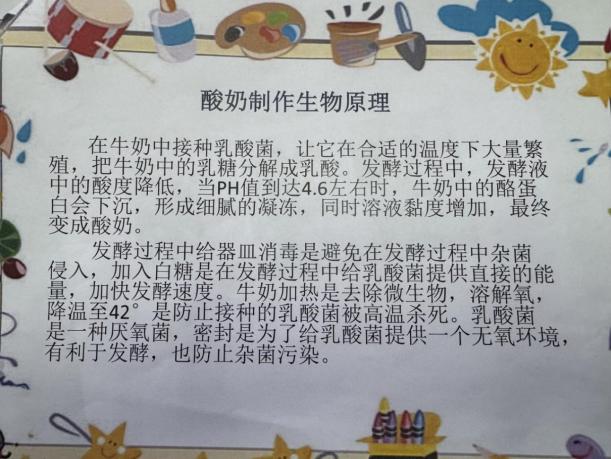 酸奶制作生物原理
在牛奶中接种乳酸菌，让它在合适的温度下大量繁
殖，把牛奶中的乳糖分解成乳酸。发酵过程中，发酵液
中的酸度降低，当PH值到达4.6左右时，牛奶中的酪蛋
白会下沉，形成细腻的凝冻，同时溶液黏度增加，最终
变成酸奶。
发酵过程中给器皿消毒是避免在发酵过程中杂菌
侵入，加入白糖是在发酵过程中给乳酸菌提供直接的能
量，加快发酵速度。牛奶加热是去除微生物，溶解氧，
降温至42°是防止接种的乳酸菌被高温杀死。乳酸菌
是一种厌氧菌，密封是为了给乳酸菌提供一个无氧环境，
有利于发酵，也防止杂菌污染。